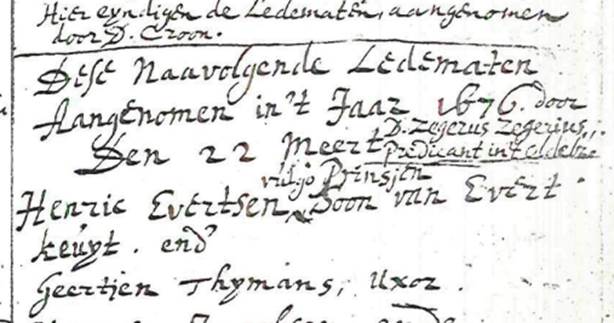 Hier eyndigen de Ledematen, aangenomen
door D. Croon.
Dese Naavolgende Ledematen
Aangenomen in't Jaar 1676. door
D. Zegerus Zegerius,
Den 22 Meert Predicant in
vulgo Prinsjen
Henric Evertsen, Soon van Evert
keuyt. end
Geertjen Thymans, Uxor.